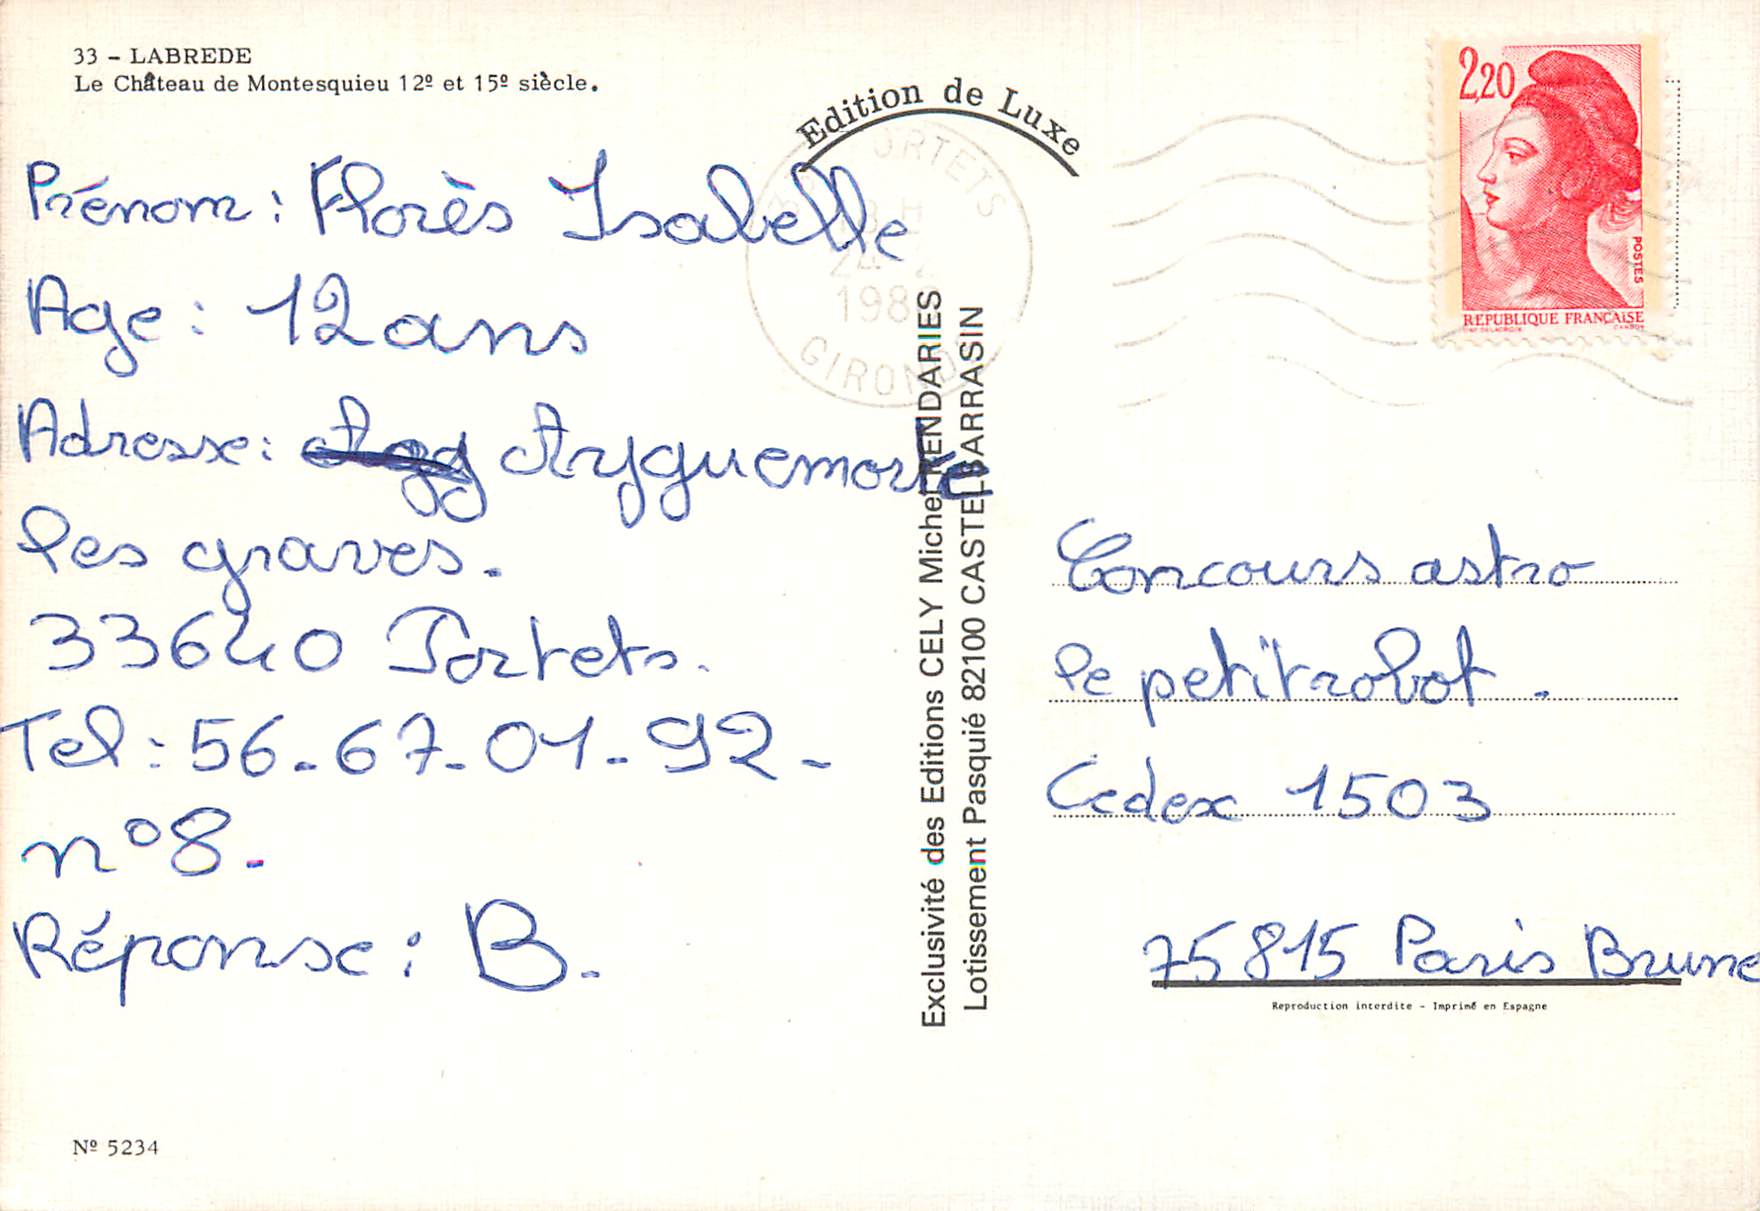 33 - LABREDE
Le Château de Montesquieu 12º et 15º siècle.
Edition de Luxe
Prénom : Florès Isabelle
Age : 12 ans
Adresse : Ayguemorte
les graves.
33640 Portets.
Tel : 56-67-01-92-
n°8.
Réponse : B.
Nº 5234
ORTETS
198
GIRONDE
Exclusivité des Editions CELY Michel RENDARIES
Lotissement Pasquié 82100 CASTELSARRASIN
2,20
POSTES
REPUBLIQUE FRANÇAISE
Concours astro
le petit robot.
Cedex 1503
75815 Paris Brune
Reproduction interdite - Imprimé en Espagne